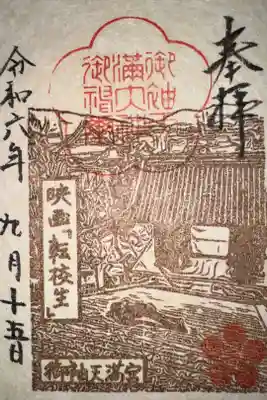 奉拝
御袖
満大神
御禍事
令和六年
九月十五日
映画「転校生」
御袖天満宮